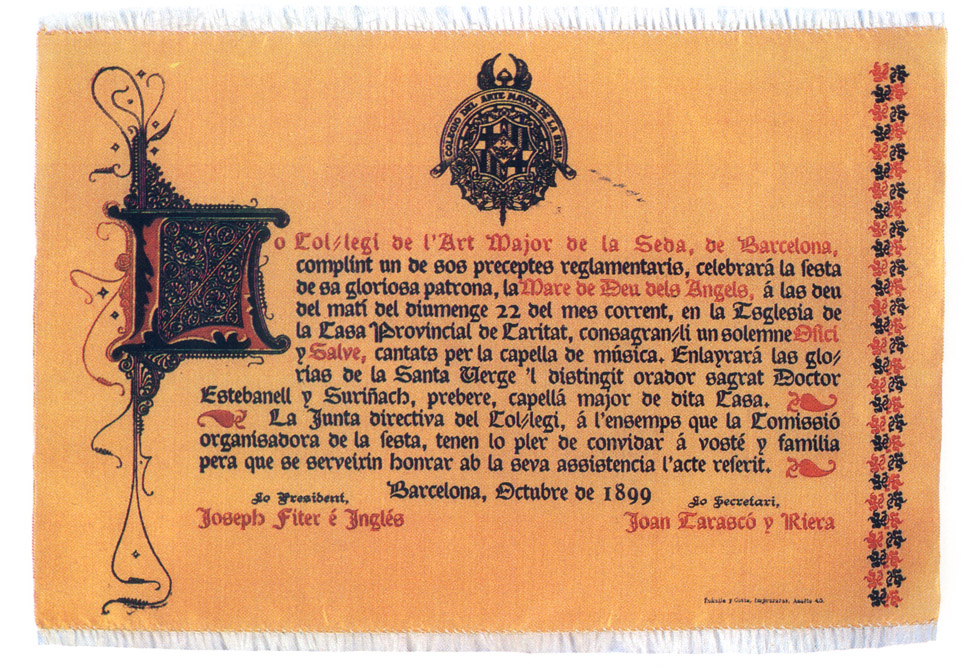 COLEGIO DEL ARTE MAYOR DE LA SEDA
Lo Col·legi de l'Art Major de la Seda, de Barcelona,
complint un de sos preceptes reglamentaris, celebrará la festa
de sa gloriosa patrona, la Mare de Deu dels Angels, á las deu
del matí del diumenge 22 del mes corrent, en la Esglesia de
la Casa Provincial de Caritat, consagran-li un solemne Ofici
y Salve, cantats per la capella de música. Enlayrará las glo-
rias de la Santa Verge 'l distingit orador sagrat Doctor
Estebanell y Suriñach, prebere, capellá major de dita Casa.
La Junta directiva del Col·legi, á l'ensemps que la Comissió
organisadora de la festa, tenen lo pler de convidar á vosté y familia
pera que se serveixin honrar ab la seva assistencia l'acte referit.
Barcelona, Octubre de 1899
Lo President,
Joseph Fiter é Inglés
Lo Secretari,
Joan Tarascó y Riera
y Costa, impressors, 45.